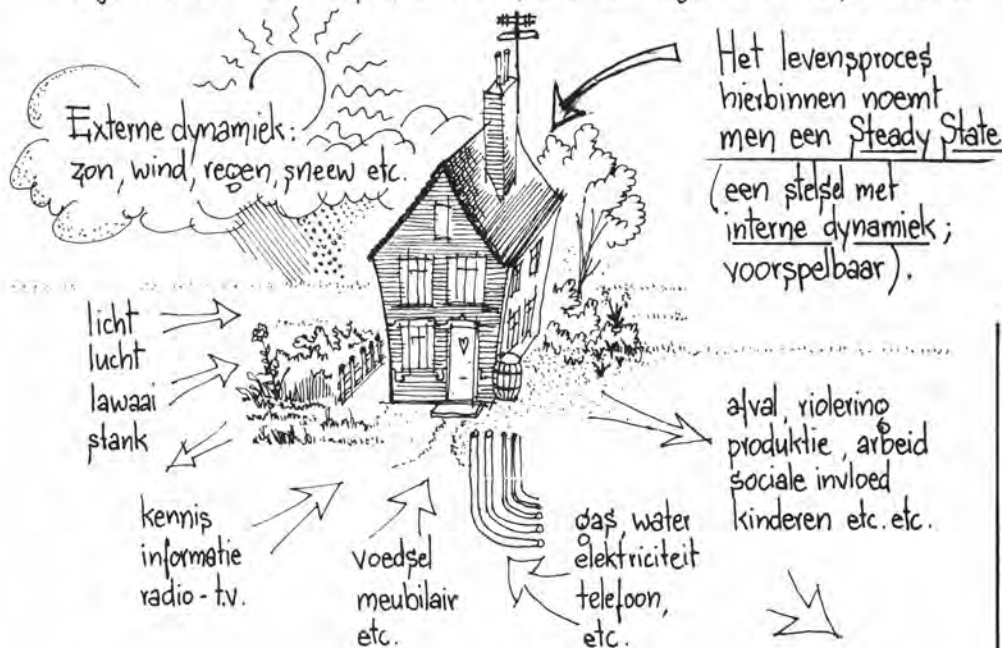 Externe dynamiek:
zon, wind, regen, sneeuw etc.
Het levensproces
hierbinnen noemt
men een Steady State
(een stelsel met
interne dynamiek;
voorspelbaar).
licht
lucht
lawaai
stank
kennis
informatie
radio - t.v.
voedsel
meubilair
etc.
gas water
elektriciteit
telefoon,
etc.
afval, riolering
produktie, arbeid
sociale invloed
kinderen etc. etc.